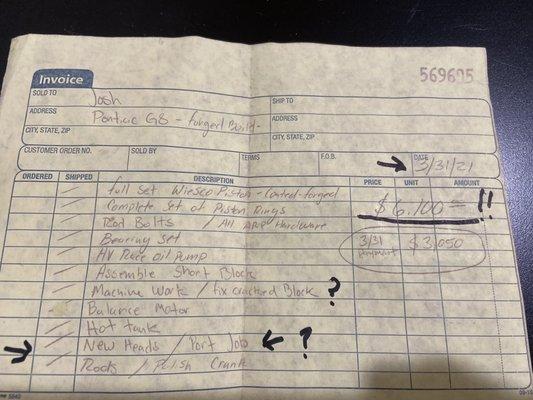 569695
Invoice
SOLD TO Josh
SHIP TO
ADDRESS Pontiac G8 - forged Build -
ADDRESS
CITY, STATE, ZIP
CITY, STATE, ZIP
CUSTOMER ORDER NO. SOLD BY TERMS F.O.B. DATE 3/31/21
ORDERED SHIPPED DESCRIPTION PRICE UNIT AMOUNT
full Set Wiesco Piston - Coated-forged
Complete Set of Piston Rings $6,100 = !!
Rod Bolts / All ARP Hardware
Bearing Set 3/31 payment $3,050
HV Race oil Pump
Assemble Short Block
Machine Work / fix cracked Block ?
Balance Motor
Hot tank
New Heads / Port Job ?
Rods / Polish Crank